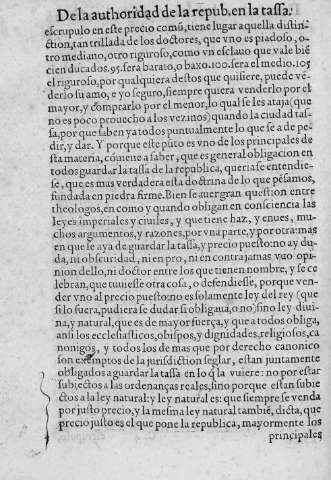 De la authoridad de la repub. en la tassa.
escrupulo en este precio comũ, tiene lugar aquella distin-
ction, tan trillada de los doctores, que vno es piadoso, o-
tro mediano, otro riguroso, como vn esclauo que vale biẽ
cien ducados. 95. sera barato, o baxo. 100. sera el medio. 105
el riguroso, por qualquiera destos que quisiere, puede vẽ-
derlo su amo, e yo seguro, siempre quiera venderlo por el
mayor, y comprarlo por el menor, lo qual se les ataja (que
no es poco prouecho a los vezinos) quando la ciudad tas-
sa, por que saben ya todos puntualmente lo que se a de pe-
dir, y dar. Y porque este pũto es vno de los principales de
sta materia, cõuiene a saber, que es general obligacion en
todos guardar la tassa de la republica, queria se entendie-
se, que es mas verdadera esta doctrina de lo que pẽsamos,
fundada en piedra firme. Bien se auerguan question entre
theologos, en como y quando obligan en consciencia las
leyes imperiales y ciuiles, y que tiene haz, y enues, mu-
chos argumentos, y razones, por vna parte, y por otra: mas
en que se aya de guardar la tassa, y precio puesto: no ay du-
da, ni obscuridad, ni en pro, ni en contra jamas vuo opi-
nion dello, ni doctor entre los que tienen nombre, y se ce
lebran, que tuuiesse otra cosa, o defendiesse, porque ven-
der vno al precio puesto: no es solamente ley del rey (que
si lo fuera, pudiera se dudar si obligaua, o no) sino ley diui-
na, y natural, que es de mayor fuerça, y que a todos obliga,
ansi los ecclesiasticos, obispos, y dignidades, religiosos, ca
nonigos, y todos los de mas que por derecho canonico
son exemptos de la jurisdiction seglar, estan juntamente
obligados a guardar la tassa en lo q̃ la vuiere: no por estar
subiectos a las ordenanças reales, sino porque estan subie
ctos a la ley natural: y ley natural es: que siempre se venda
por justo precio, y la mesma ley natural tambiẽ, dicta, que
precio justo es el que pone la republica, mayormente los
principales